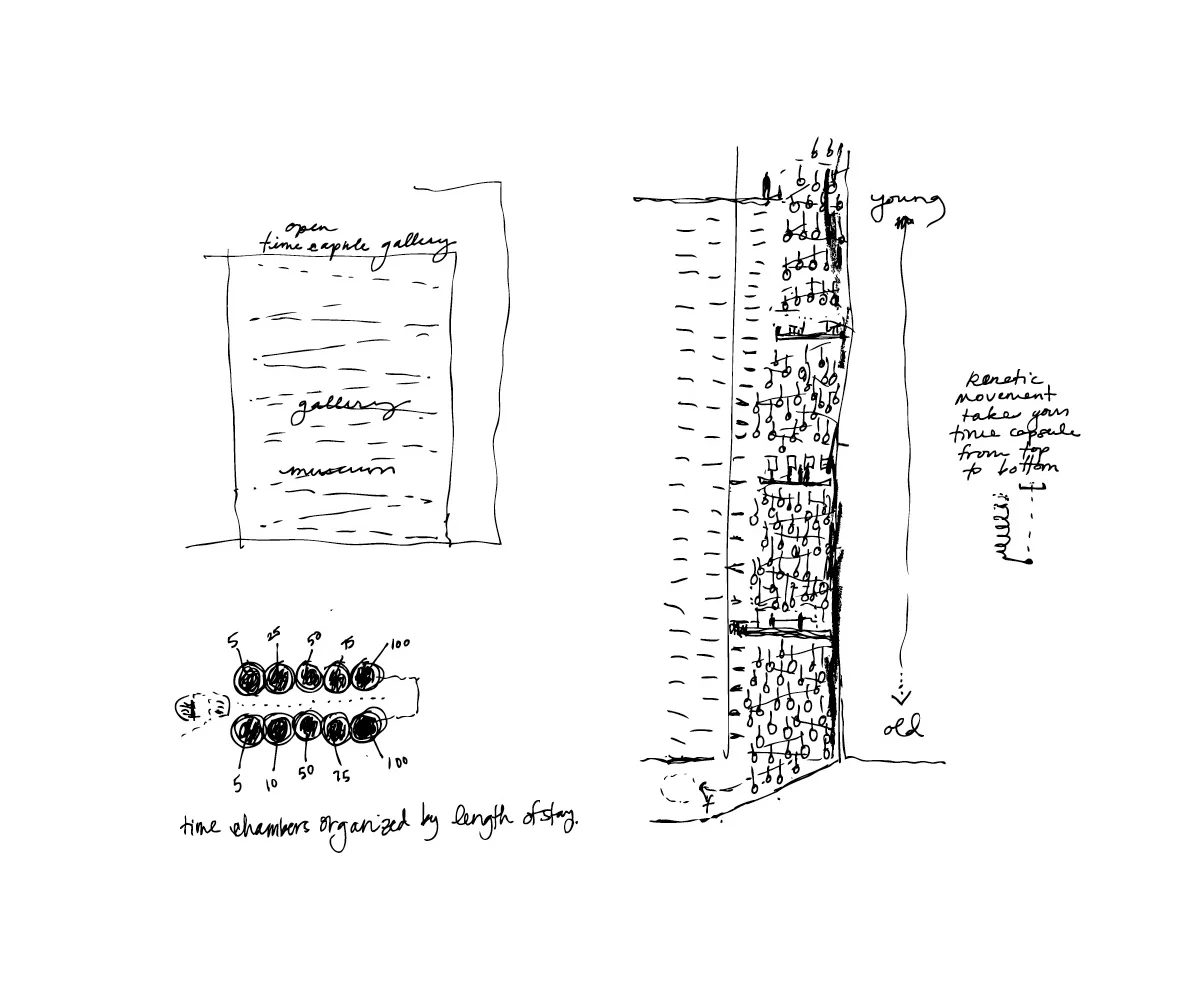 open
time capsule gallery
gallery
museum
5 25 50 75 100
5 10 50 75 100
time chambers organized by length of stay.
young
kenetic
movement
take your
time capsule
from top
to bottom
old